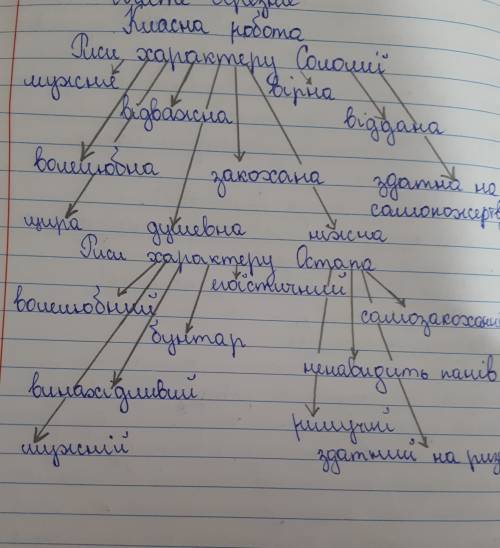 Класна робота
Риси характеру Соломії
мужня
вірна
відважна
віддана
волелюбна
закохана
здатна на
самопожертв
щира
душевна
ніжна
Риси характеру Остапа
егоїстичний
волелюбний
самозакохани
бунтар
ненавидить панів
винахідливий
рішучий
мужній
здатний на риз